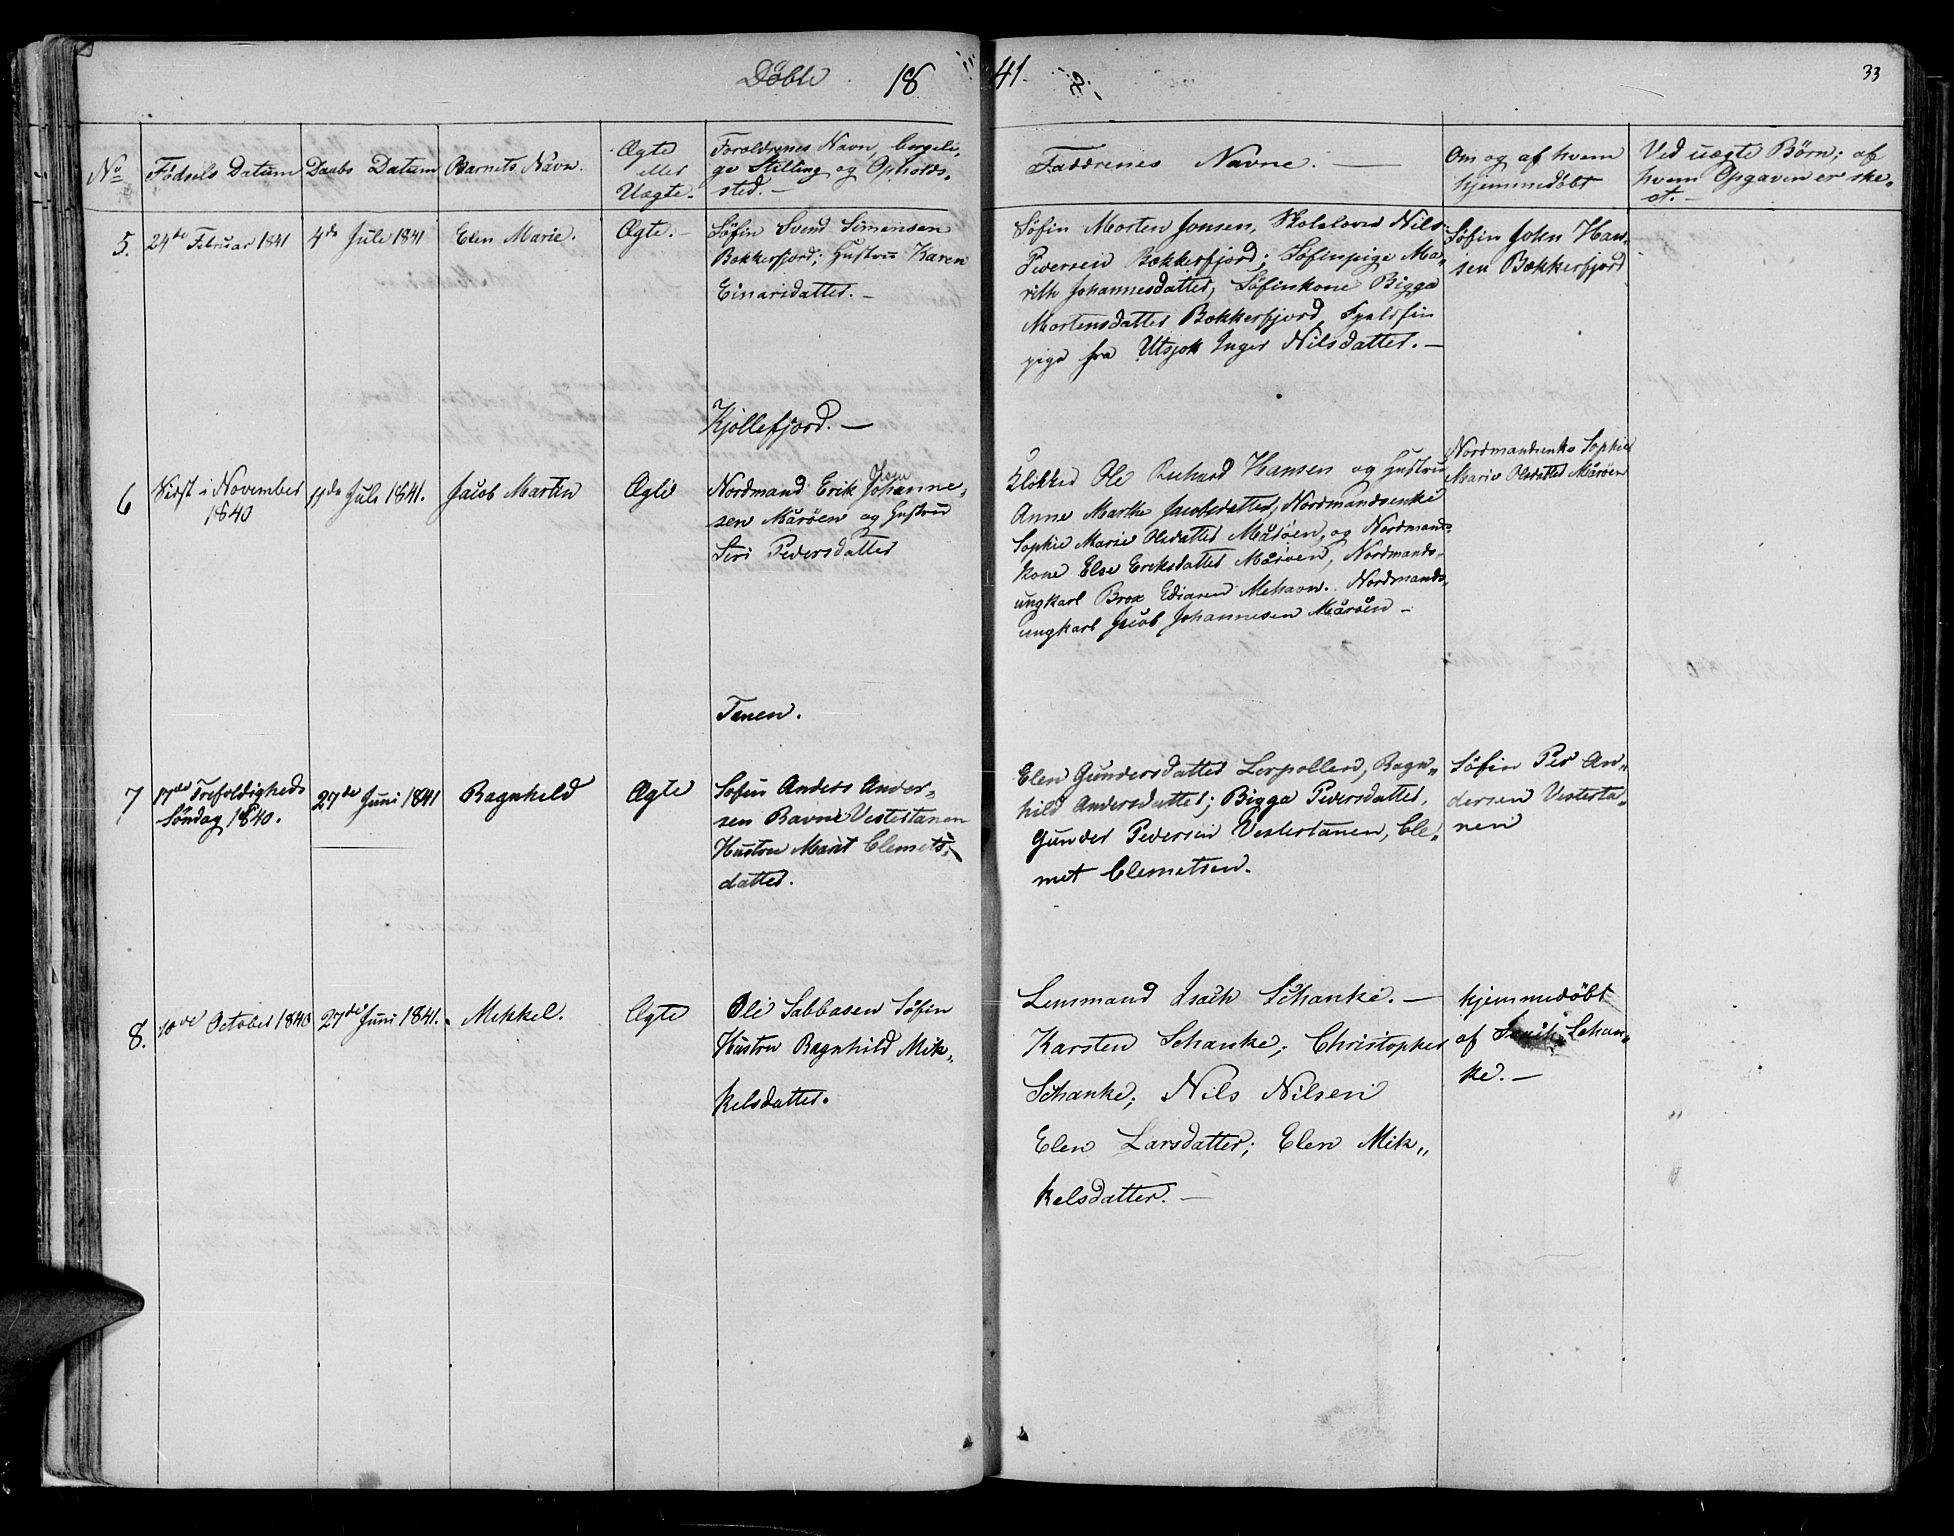 Døbte 1841.
33
No
Fødsels Datum
Daabs Datum
Barnets Navn.
Ægte
eller
Uægte.
Forældrenes Navn, borgeli-
ge Stilling og Opholds-
sted. —
Faddrenes Navne. —
Om og af hvem
hjemmedøbt
Ved uægte Børn; af
hvem Opgaven er ske-
et. —
5.
24de Februar 1841
4de Juli 1841
Elen Marie.
Ægte. —
Søfin Svend Simensen
Bekkerfjord; Hustru Karen
Einarsdatter. —
Søfin Morten Jonsen, Skolelærer Nils
Pedersen Bekkerfjord; Søfinpige Ma-
rith Johannesdatter, Søfinkone Bigga
Mortensdatter Bekkerfjord, Fjeldfin
pige fra Utsjok Inger Nilsdatter. —
Søfin John Han-
sen Bekkerfjord
Kjøllefjord. —
6
Sidst i November
1840
11de Juli 1841.
Jacob Martin
Ægte
Nordmand Erik Johanne-
sen Mårøen og Hustru
Siri Pedersdatter
Klokker Ole Richard Hansen og Hustru
Anne Marthe Jacobsdatter, Nordmandsenke
Sophie Marie Olsdatter Mårøen, og Nordmands-
kone Else Eriksdatter Mårøen, Nordmands-
ungkarl Brox Mehavn. Nordmands-
ungkarl Jacob Johannesen Mårøen —
Nordmandsenke Sophie
Marie Olsdatter Mårøen
Tanen.
7
17de Trefoldigheds
Søndag 1840.
27de Juni 1841
Ragnhild
Ægte
Søfin Anders Ander-
sen Ravna Vestertanen
Hustru Marit Clemets-
datter.
Elen Gundersdatter Lerpollen, Ragn-
hild Andersdatter; Bigga Pedersdatter,
Gunder Pedersen Vestertanen, Cle-
met Clemetsen.
Søfin Per An-
dersen Vesterta-
nen
8.
10de October 1840
27de Juni 1841.
Mikkel.
Ægte
Ole Sabbasen Søfin
Hustru Ragnhild Mik-
kelsdatter.
Lensmand Isach Schanke. —
Karsten Schanke; Christopher
Schanke; Nils Nilsen
Elen Larsdatter; Elen Mik-
kelsdatter. —
hjemmedøbt
af Isach Schan-
ke. —